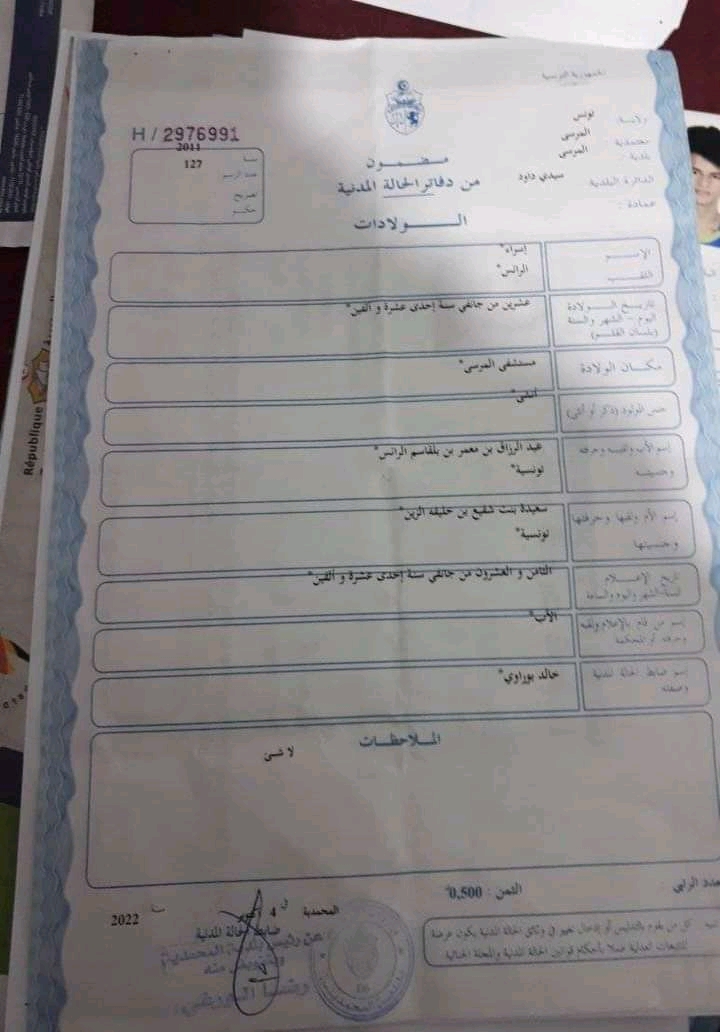 الجمهورية التونسية
ولاية: تونس
معتمدية: المرسى
بلدية: المرسى
الدائرة البلدية سيدي داود
عمادة:
H / 2976991
سنة 2011
عدد الرسم 127
تصريح
حكم
مضمون
من دفاتر الحالة المدنية
الولادات
الإسم إسراء*
اللقب الرانس*
تاريخ الولادة عشرين من جانفي سنة إحدى عشرة و ألفين*
اليوم - الشهر والسنة
(بلسان القلم)
مكان الولادة مستشفى المرسى*
جنس المولود (ذكر أو أنثى) أنثى*
إسم الأب ولقبه وحرفته عبد الرزاق بن معمر بن بلقاسم الرانس*
وجنسيته تونسية*
إسم الأم ولقبها وحرفتها سعيدة بنت شفيع بن خليفه الزين*
وجنسيتها تونسية*
تاريخ الإعلام الثامن و العشرون من جانفي سنة إحدى عشرة و ألفين*
السنة-الشهر واليوم والساعة
إسم من قام بالإعلام ولقبه الأب*
وحرفته أو المحكمة
إسم ضابط الحالة المدنية خالد بوراوي*
وصفته
الملاحظات
لا شئ
الثمن : 0,500
المحمدية في 4 سنة 2022
ضابط الحالة المدنية
عن رئيس بلدية المحمدية
وبتفويض منه
كل من يقوم بالتدليس أو إدخال تغيير في وثائق الحالة المدنية يكون عرضة
للتتبعات العدلية عملا بأحكام قوانين الحالة المدنية والمجلة الجنائية
République